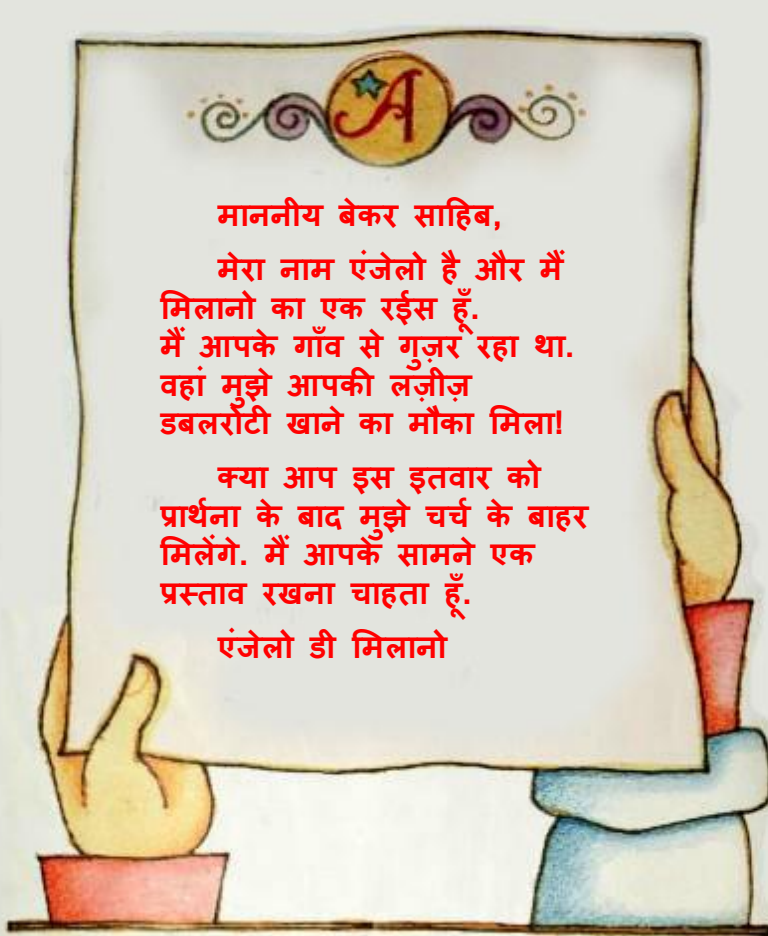 A
माननीय बेकर साहिब,
मेरा नाम एंजेलो है और मैं
मिलानो का एक रईस हूँ.
मैं आपके गाँव से गुज़र रहा था.
वहां मुझे आपकी लज़ीज़
डबलरोटी खाने का मौका मिला!
क्या आप इस इतवार को
प्रार्थना के बाद मुझे चर्च के बाहर
मिलेंगे. मैं आपके सामने एक
प्रस्ताव रखना चाहता हूँ.
एंजेलो डी मिलानो